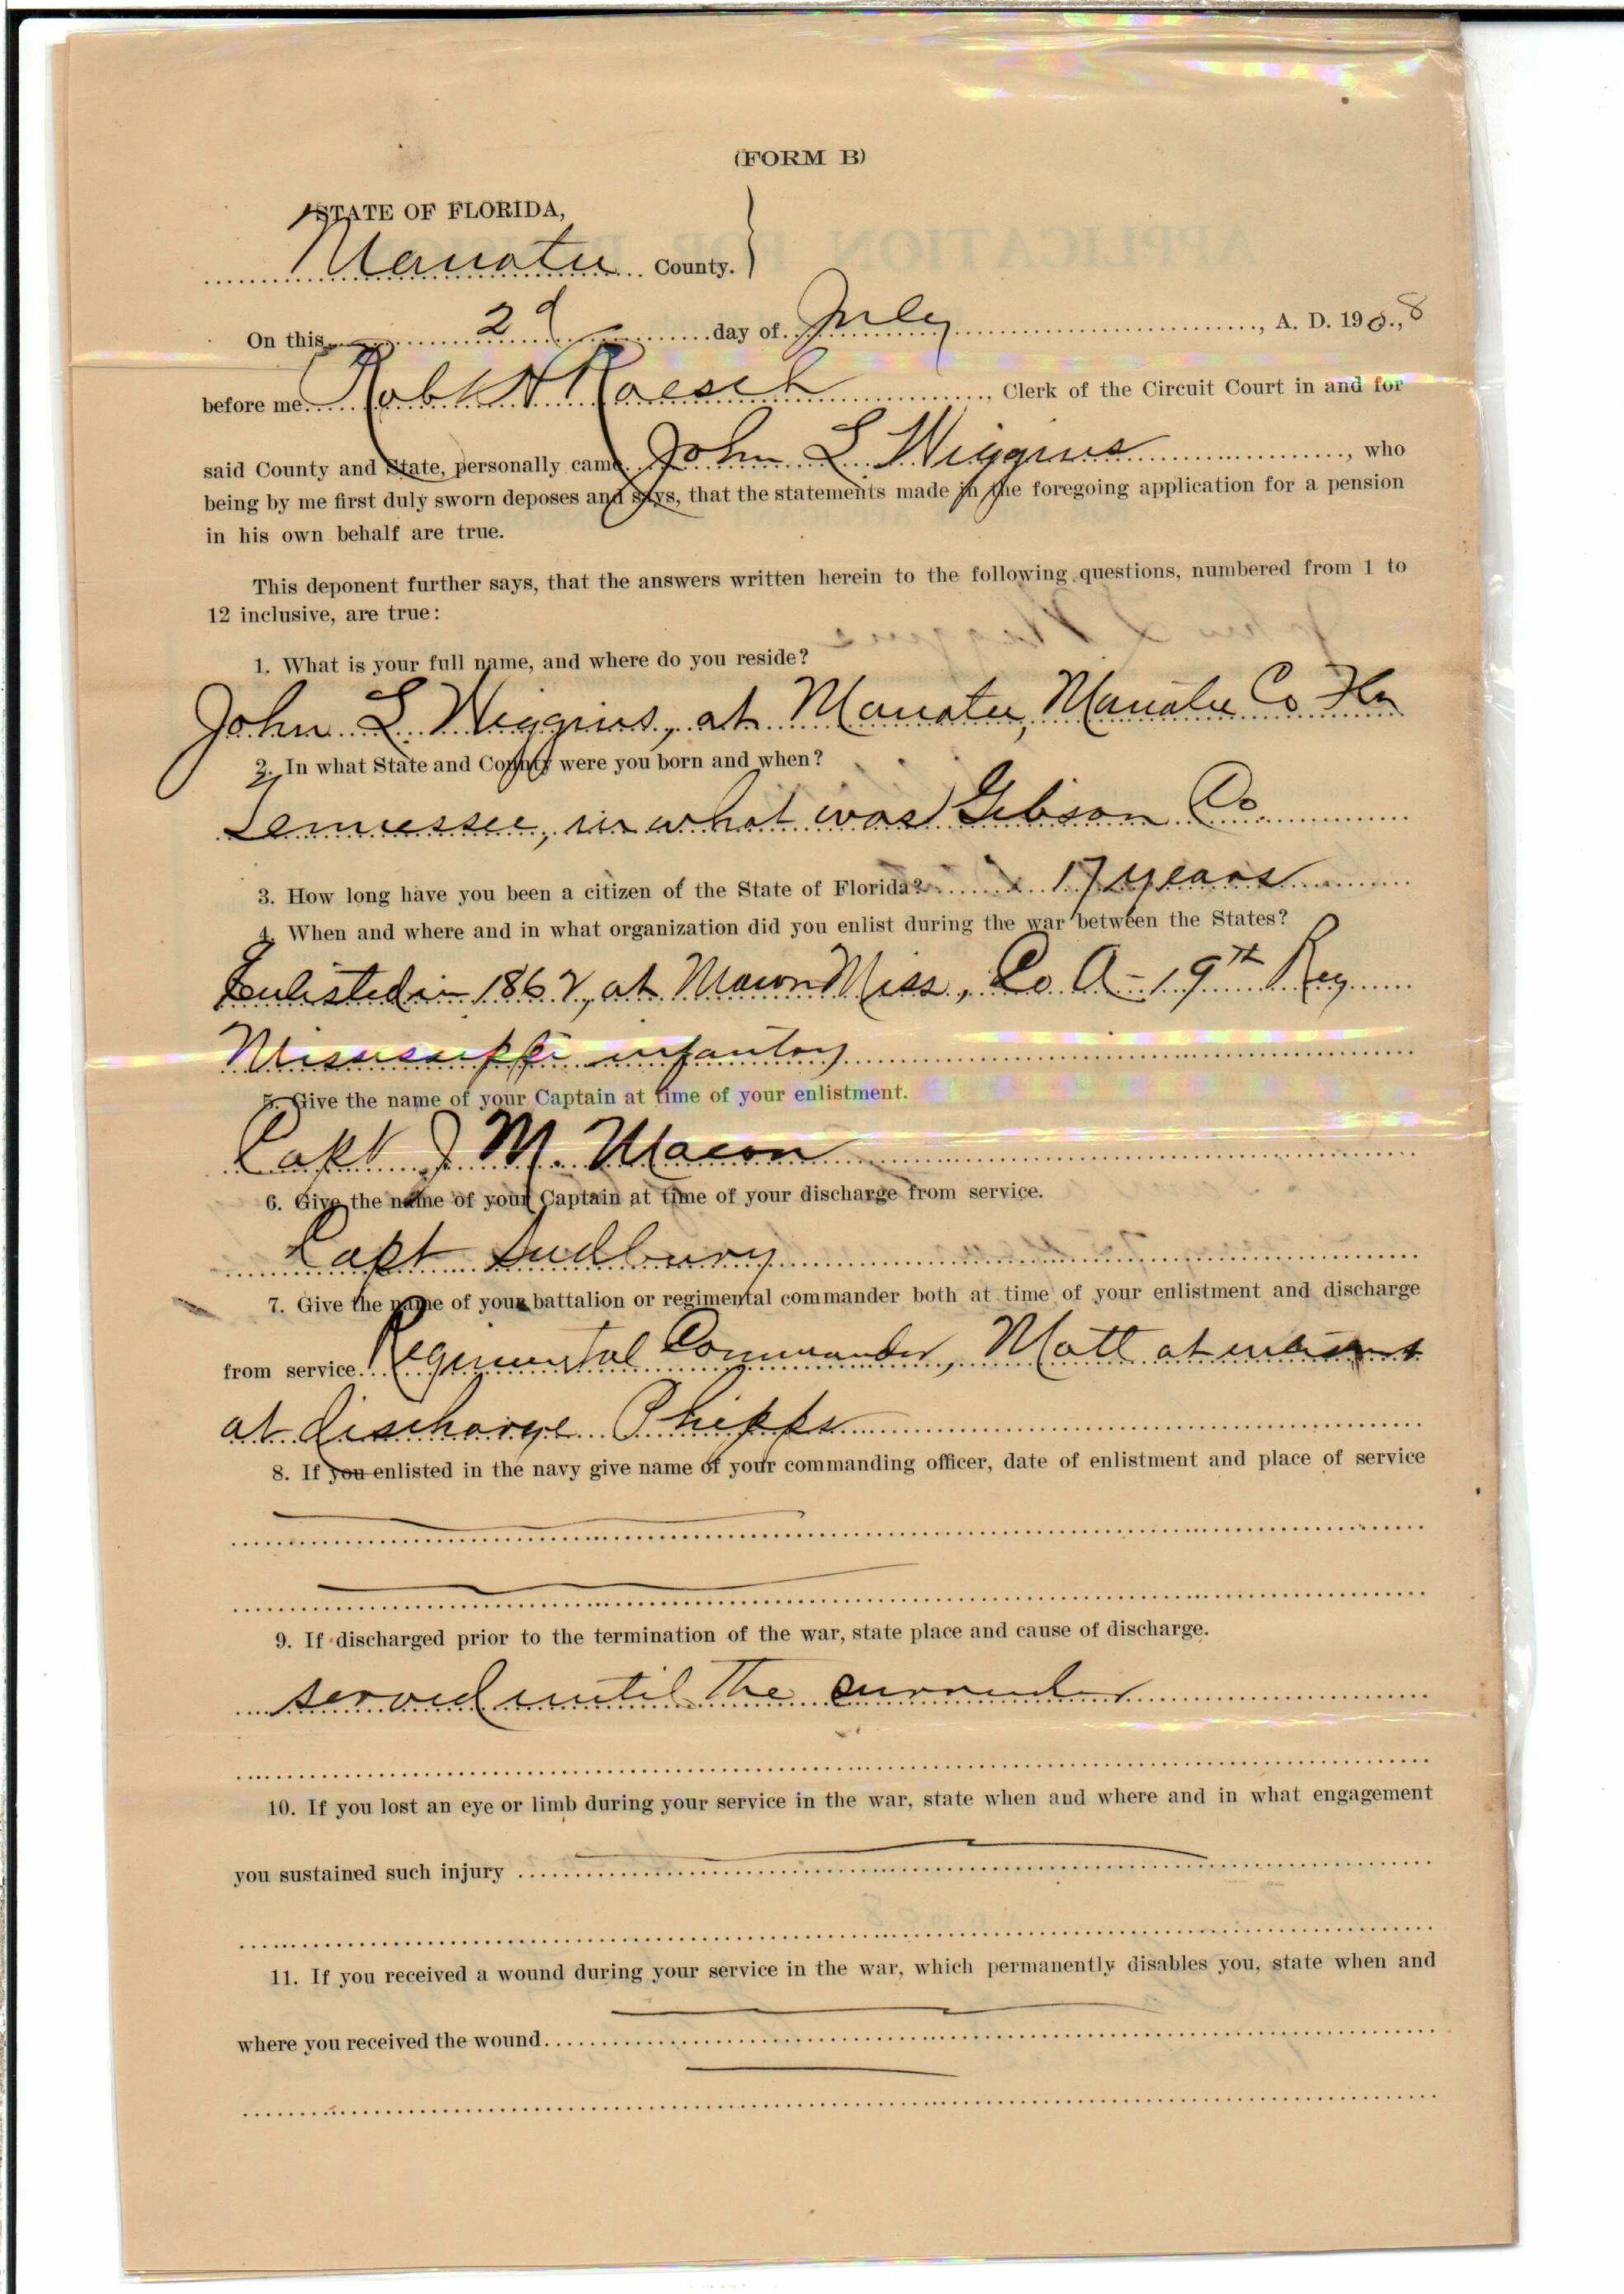 (FORM B)
STATE OF FLORIDA,
Manatee County.
On this 2d day of July, A. D. 1908
before me Robt H Roesch, Clerk of the Circuit Court in and for
said County and State, personally came John L Wiggins, who
being by me first duly sworn deposes and says, that the statements made in the foregoing application for a pension
in his own behalf are true.
This deponent further says, that the answers written herein to the following questions, numbered from 1 to
12 inclusive, are true:
1. What is your full name, and where do you reside?
John L. Wiggins, at Manatee, Manatee Co Fla
2. In what State and County were you born and when?
Tennessee, in what was Gibson Co.
3. How long have you been a citizen of the State of Florida? 17 years
4. When and where and in what organization did you enlist during the war between the States?
Enlisted in 1862, at Macon Miss, Co A - 19th Reg
Mississippi infantry
5. Give the name of your Captain at time of your enlistment.
Capt J. M. Macon
6. Give the name of your Captain at time of your discharge from service.
Capt Sudbury
7. Give the name of your battalion or regimental commander both at time of your enlistment and discharge
from service. Regimental Commander, Mott at
at discharge Phipps
8. If you enlisted in the navy give name of your commanding officer, date of enlistment and place of service
9. If discharged prior to the termination of the war, state place and cause of discharge.
served until the surrender
10. If you lost an eye or limb during your service in the war, state when and where and in what engagement
you sustained such injury
11. If you received a wound during your service in the war, which permanently disables you, state when and
where you received the wound.